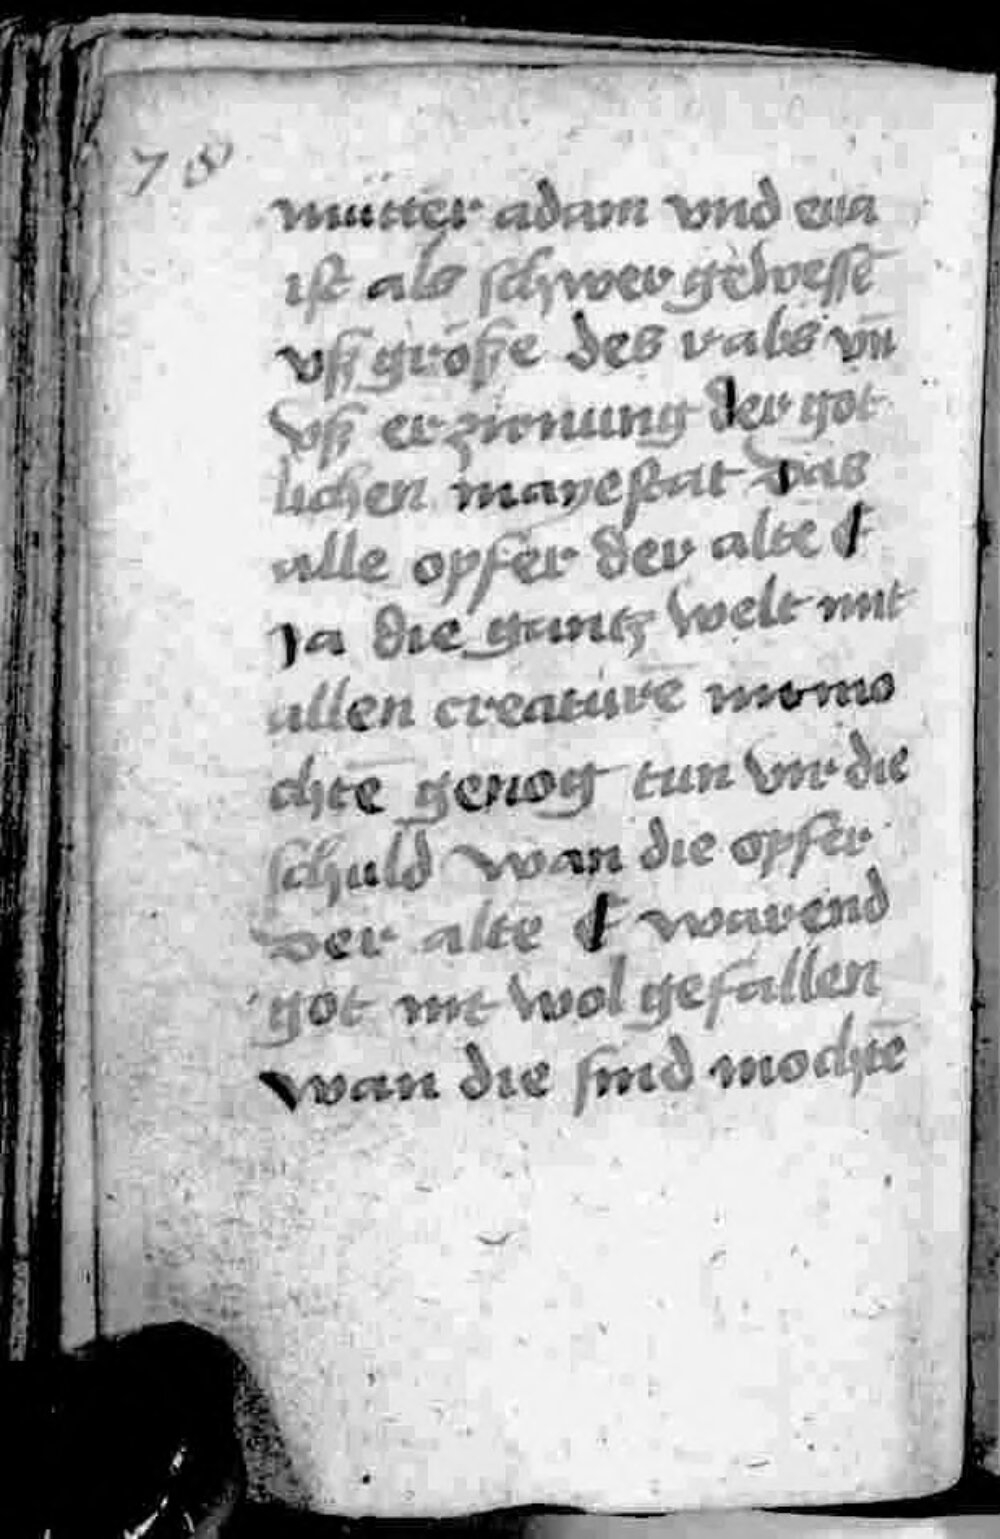 78
mütter adam vnd eua
ist als schwer gewessē
vß größe des vals vn̄
vß erzirnung der got
lichen mayestat das
alle opfer der alte ē
Ja die gantz welt mit
allen creaturē nit mo
chtē genog tun vm die
schuld wan die opfer
der alte ē warend
got nit wol gefallen
wan die sind mochtē